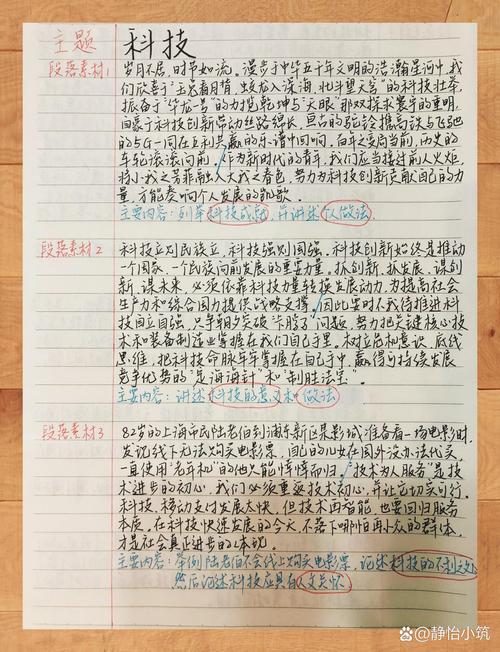 主题 科技
段落素材1 岁月不居,时节如流。漫步于中华五千年文明的浩瀚星河中,我
们欣喜于"玉兔着月情,蛟龙入深海,北斗望天宫"的科技壮举
振奋于"华龙号"的力揽乾坤与"天眼"那双探求寰宇的重明,
自豪于科技创新带动丝路绵长,亘古的驼铃推高铁与飞驰
的5G一同在互利共赢的乐谱中回响。百年之变局当前,历史的
车轮滚滚向前。作为新时代的青年,我们应当接过前人火炬,
将小我之芳菲融入大我之春色,努力为科技创新贡献自己的力
量,方能奏响个人发展的凯歌。
主要内容:列举科技成就,并讲述个人做法。
段落素材2 科技立则民族立,科技强则国强。科技创新始终是推动
一个国家、一个民族向前发展的重要力量。抓创新,抓发展,谋创
新,谋未来,必须依靠科技力量转换发展动力,为提高社会
生产力和综合国力提供战略支撑。因此要时不我待推进科
技自立自强,只争朝夕突破"卡脖子"问题,努力把关键核心技
术和装备制造业掌握在我们自己手里。树立居和意识、底线
思维,把科技命脉牢牢掌握在自己手中,赢得可持续发展
竞争优势的"定海神针"和"制胜法宝"。
主要内容:讲述科技的意义和做法
段落素材3 82岁的上海市民陆老伯到浦东新区某影城准备看一场电影时,
发现线下无法购买电影票,自己的儿女在国外没办法代买,
一直使用"老年机"的他只能悻悻而归。"技术为人服务"是技
术进步的初心,我们必须重返技术初心,并让它切实可行。
科技,移动支付发展太快,但技术再智能,也要回归服务
本质。在科技快速发展的今天,不落下哪怕再小众的群体,
才是社会真正进步的体现。
主要内容:举例陆老伯不会线上购买电影票,论述科技的不利之处,
然后论述科技应具有人文关怀
百家号/静怡小筑